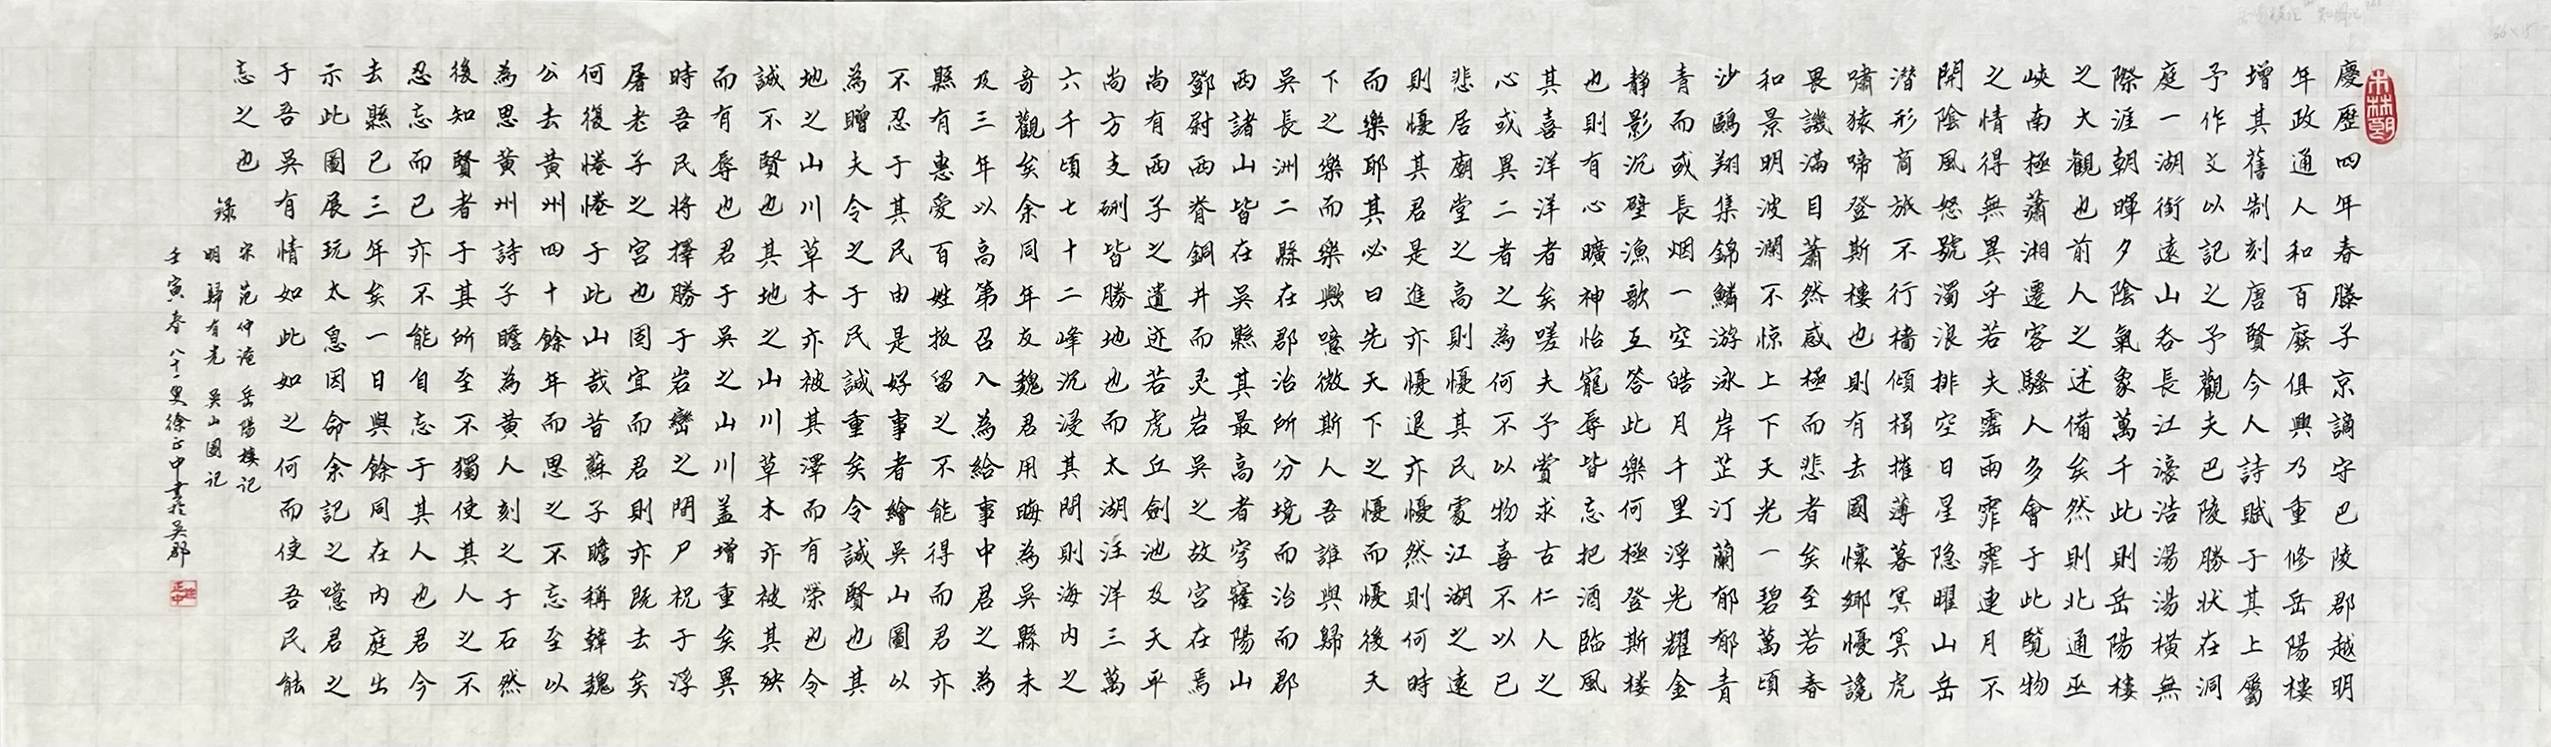 慶歷四年春滕子京謫守巴陵郡越明
年政通人和百廢俱興乃重修岳陽樓
增其舊制刻唐賢今人詩賦于其上屬
予作文以記之予觀夫巴陵勝狀在洞
庭一湖銜遠山吞長江濠浩湯湯橫無
際涯朝暉夕陰氣象萬千此則岳陽樓
之大觀也前人之述備矣然則北通巫
峽南極蕭湘遷客騷人多會于此覽物
之情得無異乎若夫霪雨霏霏連月不
開陰風怒號濁浪排空日星隐曜山岳
潜形商旅不行檣傾楫摧薄暮冥冥虎
嘯猿啼登斯樓也則有去國懷鄉憂讒
畏譏滿目蕭然感極而悲者矣至若春
和景明波瀾不惊上下天光一碧萬頃
沙鷗翔集錦鱗游泳岸芷汀蘭郁郁青
青而或長烟一空皓月千里浮光耀金
靜影沉壁漁歌互答此樂何極登斯樓
也則有心曠神怡寵辱皆忘把酒臨風
其喜洋洋者矣嗟夫予嘗求古仁人之
心或異二者之為何不以物喜不以已
悲居廟堂之高則憂其民處江湖之遠
則憂其君是進亦憂退亦憂然則何時
而樂耶其必曰先天下之憂而憂後天
下之樂而樂歟噫微斯人吾誰與歸
吳長洲二縣在郡治所分境而治而郡
西諸山皆在吳縣其最高者穹窿陽山
鄧尉西脊銅井而灵岩吳之故宮在焉
尚有西子之遺迹若虎丘劍池及天平
尚方支硎皆勝地也而太湖汪洋三萬
六千頃七十二峰沉浸其間則海內之
奇觀矣余同年友魏君用晦為吳縣未
及三年以高第召入為給事中君之為
縣有惠愛百姓扳留之不能得而君亦
不忍于其民由是好事者繪吳山圖以
為贈夫令之于民誠重矣令誠賢也其
地之山川草木亦被其澤而有榮也令
誠不賢也其地之山川草木亦被其殃
而有辱也君于吳之山川盖增重矣異
時吾民將擇勝于岩巒之間尸祝于浮
屠老子之宮也固宜而君則亦既去矣
何復惓惓于此山哉昔蘇子瞻稱韓魏
公去黃州四十餘年而思之不忘至以
為思黃州詩子瞻為黃人刻之于石然
後知賢者于其所至不獨使其人之不
忍忘而已亦不能自忘于其人也君今
去縣已三年矣一日與餘同在內庭出
示此圖展玩太息因命余記之噫君之
于吾吳有情如此如之何而使吾民能
忘之也
錄
宋范仲淹 岳陽樓記
明歸有光 吳山圖記
壬寅春八十一叟徐正中書於吳郡